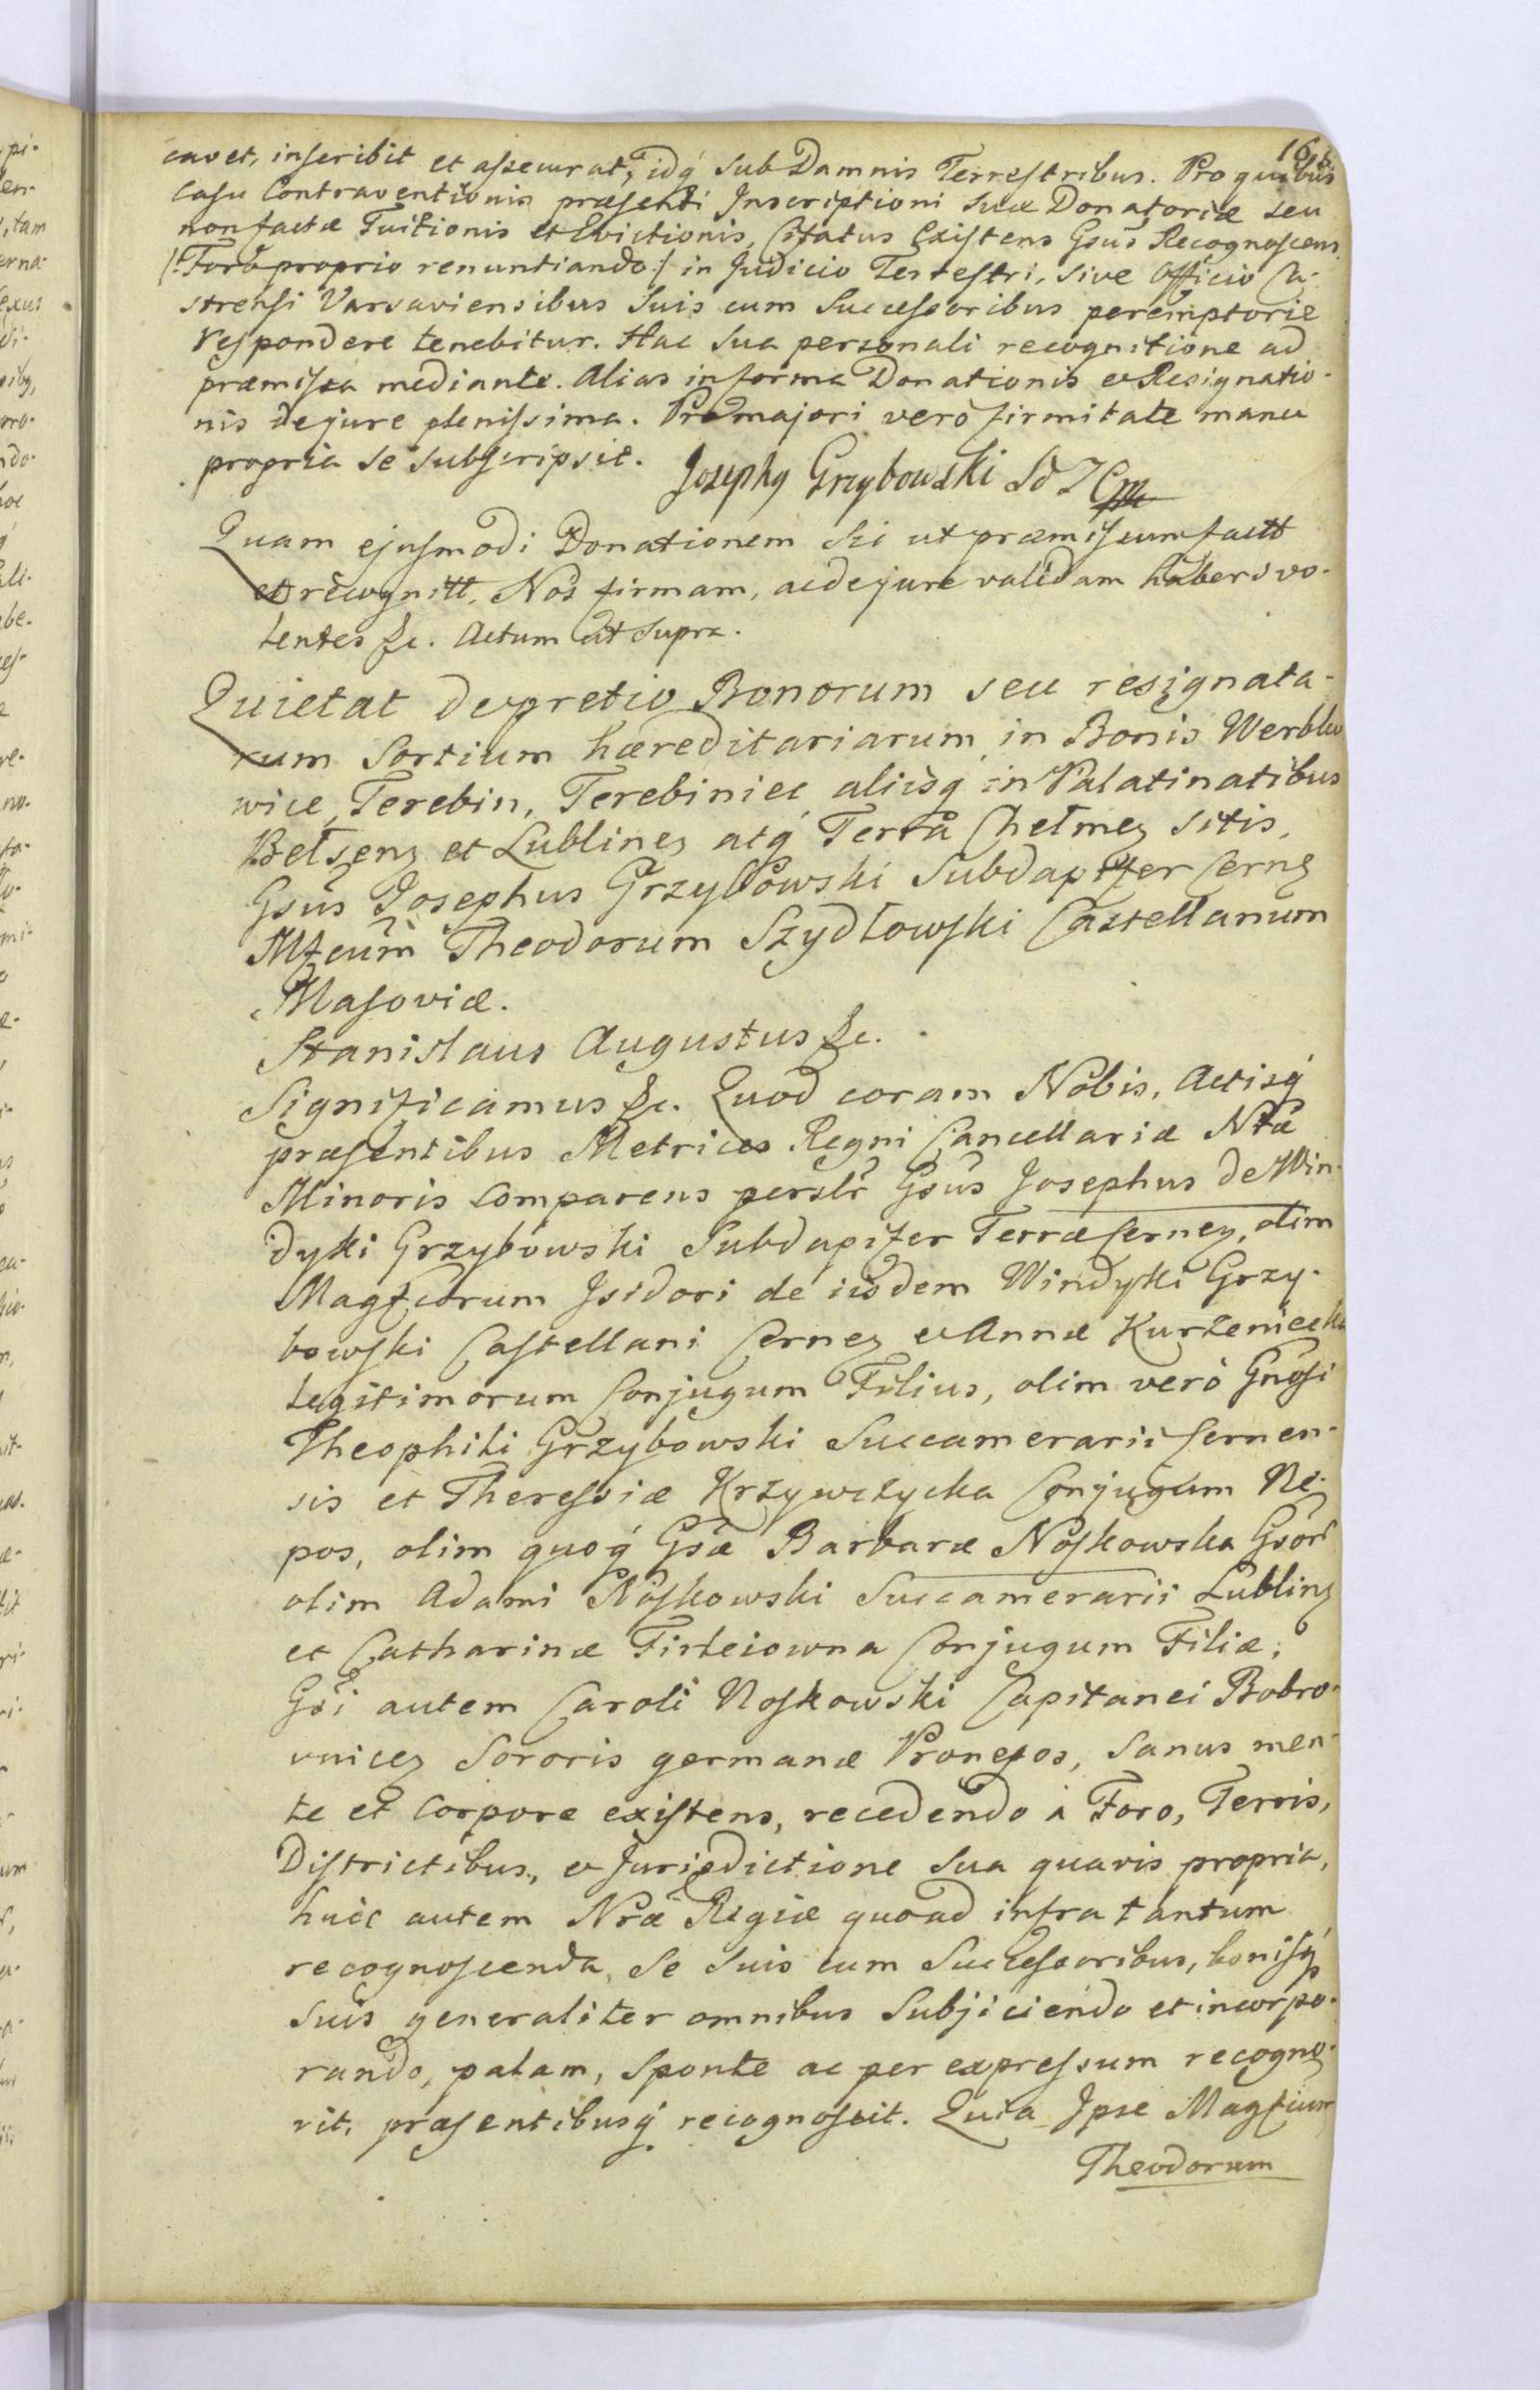 cavet, inscribit et assecurat, idq́ sub Damnis Terrestribus. Pro quibus
casu Contraventionis præsenti Inscriptioni suæ Donatoriæ seu
non factæ Tuitionis et Evictionis, Citatus Existens Gsus Recognoscens
/: Foro proprio renuntiando :/ in Judicio Terrestri, sive Officio Ca-
strensi Varsaviensibus suis cum Successoribus peremptorie
respondere tenebitur. Hac sua personali recognitione ad
præmissa mediante. Alias in forma Donationis et Resignatio-
nis de jure plenissima. Pro majori verò firmitate manu
propria se subscripsit. Josephq Grzybowski
Quam ejusmodi Donationem sic ut præmissum factt
et recognitt, Nos firmam, ac de jure validam haberi vo-
lentes &c. Actum ut supra.
Quietat de pretio Bonorum seu resignata-
rum Sortium hæreditariarum in Bonis Werbko
wice, Terebin, Terebiniec aliisq́ in Palatinatibus
Bełzenz et Lublinez atq́ Terra Chełmez sitis,
Gsus Josephus Grzybowski Subdapifer Cernz
Mfcum Theodorum Szydłowski Castellanum
Masoviæ.
Stanislaus Augustus &c.
Significamus &c. Quod coram Nobis, Actisq́
præsentibus Metrices Regni Cancellariæ Nræ
Minoris comparens persłr Gsus Josephus de Win-
dyki Grzybowski Subdapifer Terræ Cernez, olim
Magfcorum Isidori de iisdem Windyki Grzy-
bowski Castellani Cernez et Annæ Kurzeniecka
legitimorum Conjugum Filius, olim verò Gnosi
Theophili Grzybowski Succamerarii Cernen-
sis et Theressiæ Krzywczycka Conjugum Ne-
pos, olim quoq́ Gsæ Barbaræ Noskowska Gsor̃
olim Adami Noskowski Succamerarii Lublinz
et Catharinæ Firleiowna Conjugum Filiæ,
Gsi autem Caroli Noskowski Capitanei Bobro-
vnicez Sororis germanæ Pronepos, sanus men-
te et Corpore existens, recedendo à Foro, Terris,
Districtibus, et Jurisdictione sua quavis propria,
huic autem Nræ Regiæ quoad infra tantum
recognoscenda, se suis cum Successoribus, bonisq́
suis generaliter omnibus Subjiciendo et incorpo-
rando, palam, sponte ac per expressum recogno-
vit, præsentibusq́ recognoscit. Quia Ipse Magfcum
Theodorum